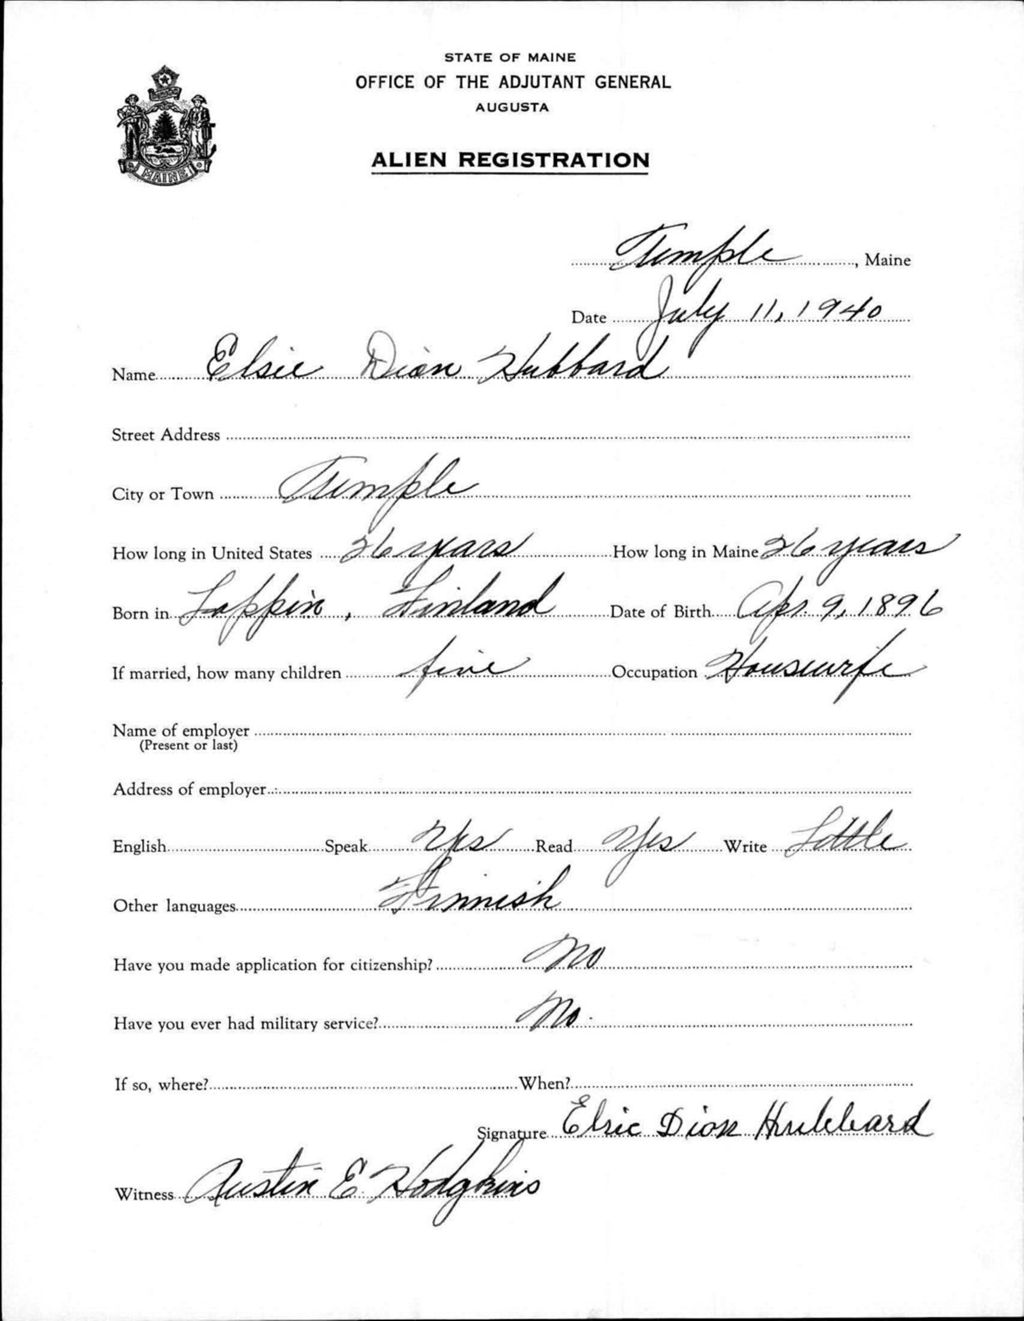 STATE OF MAINE
OFFICE OF THE ADJUTANT GENERAL
AUGUSTA
MAINE
ALIEN REGISTRATION
Temple, Maine
Date July 11, 1940
Name Elsie Dion Hubbard
Street Address
City or Town Temple
How long in United States 26 years How long in Maine 26 years
Born in Lappin, Finland Date of Birth Apr. 9, 1896
If married, how many children five Occupation Housewife
Name of employer
(Present or last)
Address of employer
English Speak Yes Read Yes Write Little
Other languages Finnish
Have you made application for citizenship? No
Have you ever had military service? No.
If so, where? When?
Signature Elsie Dion Hubbard
Witness Austin E Hodgkins